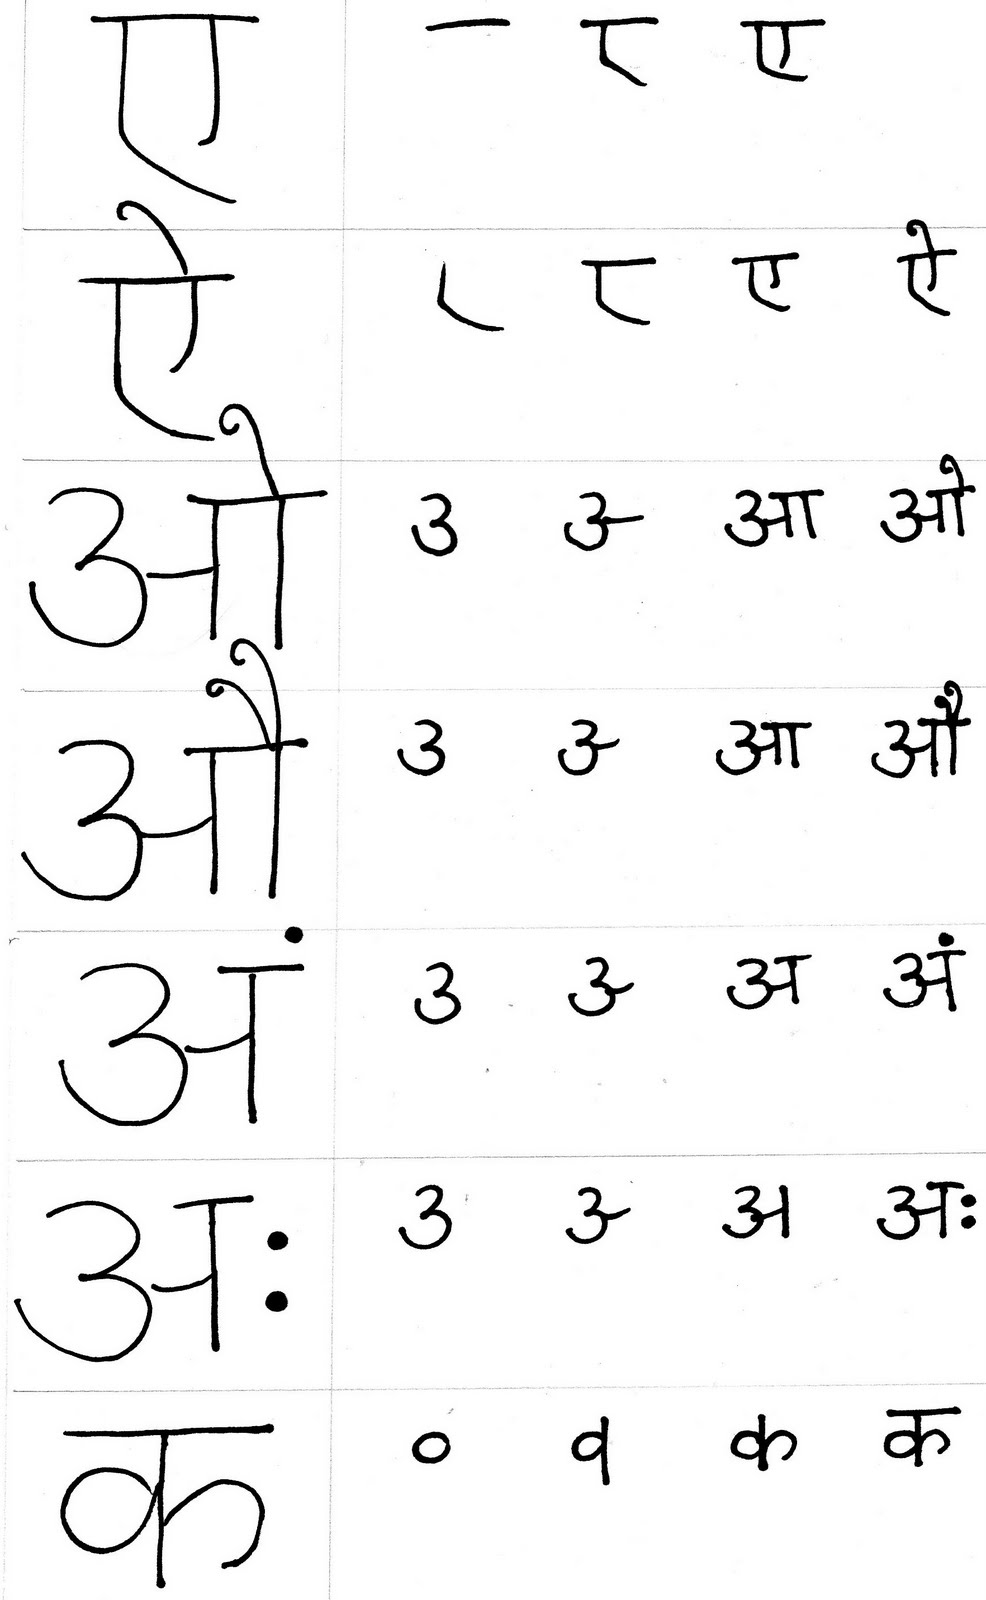 ए ए
ऐ ए ऐ
ओ उ आ ओ
औ उ आ औ
अं उ अ अं
अः उ अ अः
क ० व क क